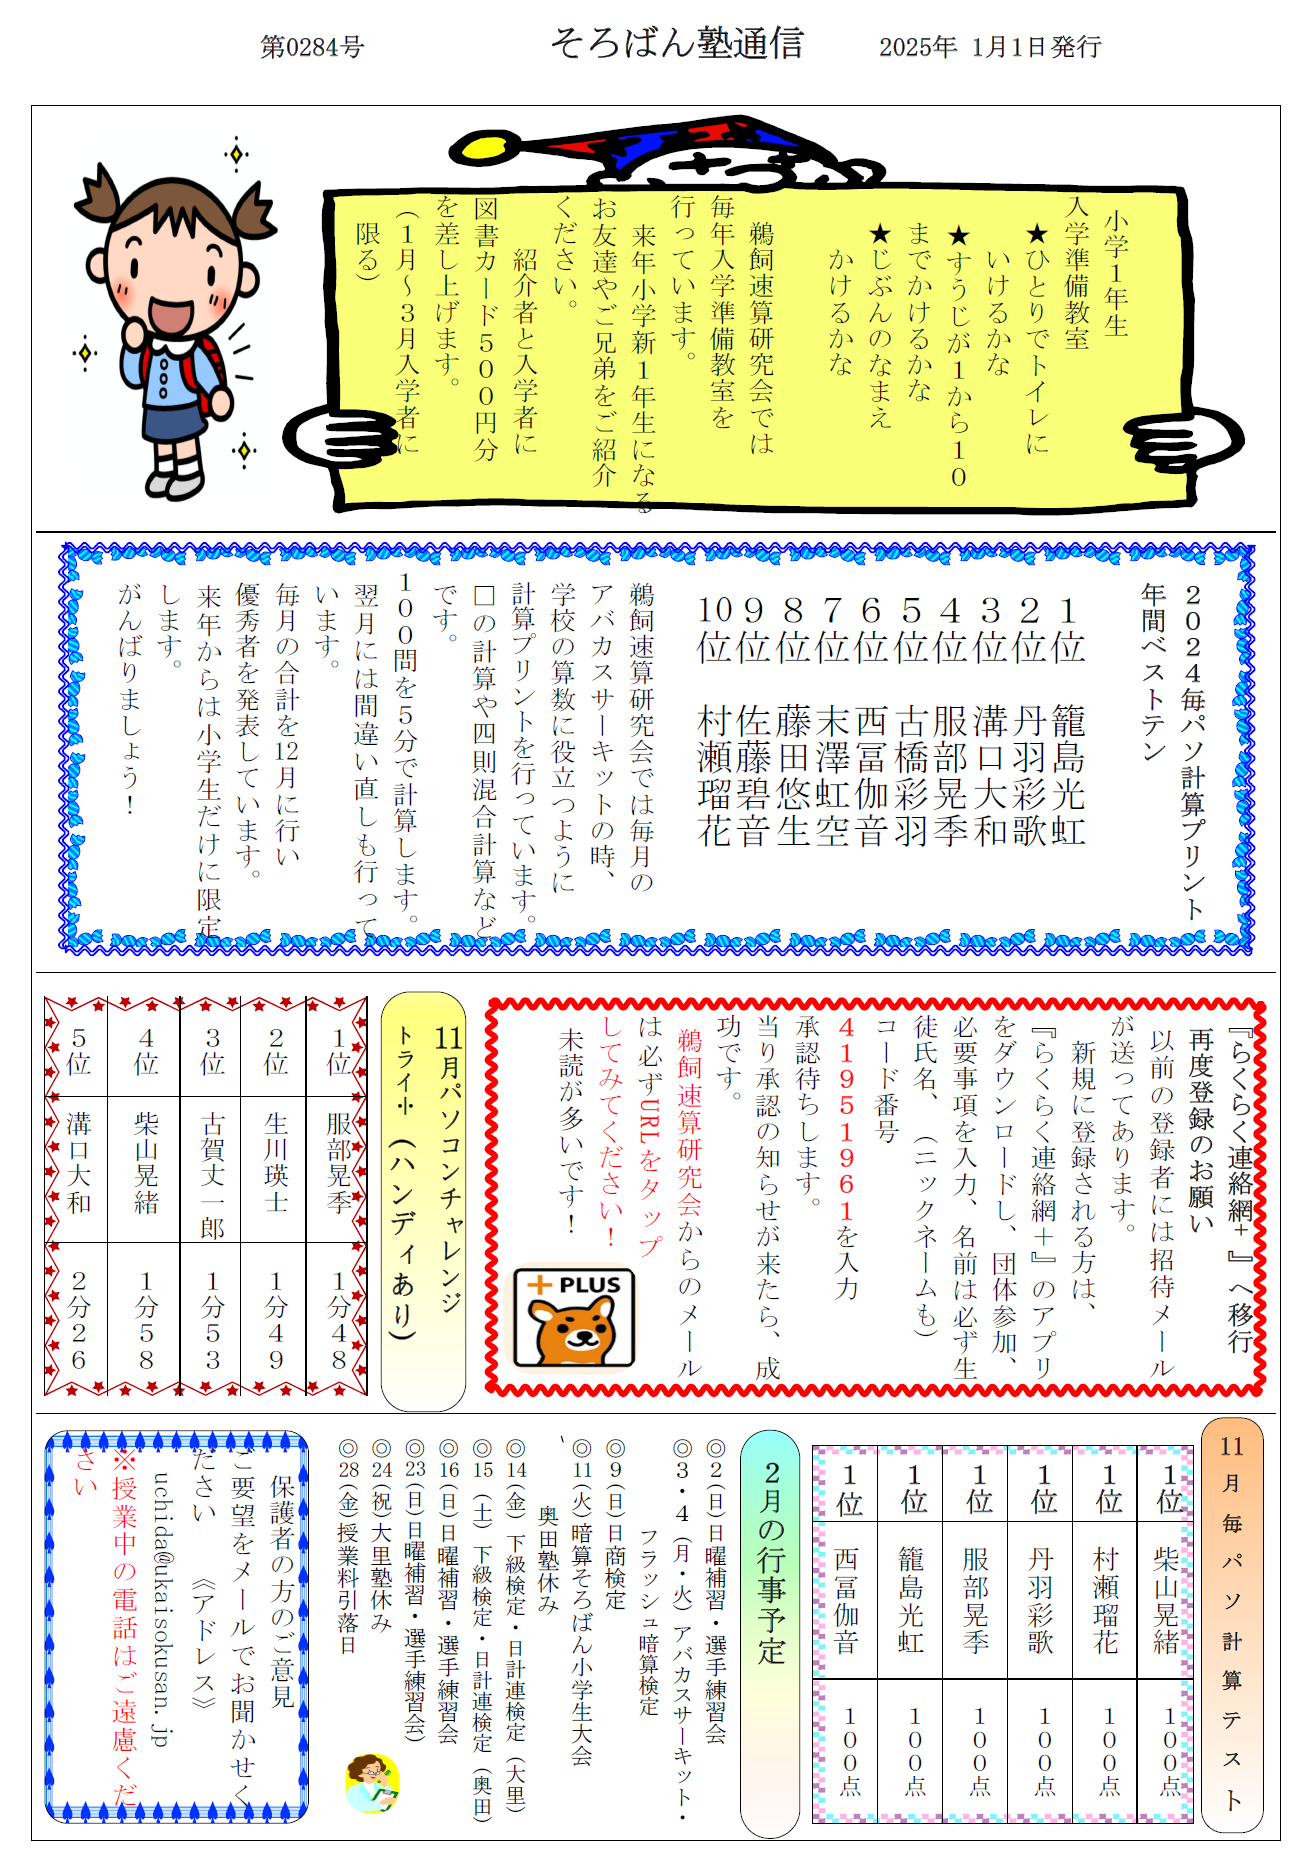 第0284号
そろばん塾通信
2025年 1月1日発行
小学１年生
入学準備教室
★ひとりでトイレに
いけるかな
★すうじが１から１０
までかけるかな
★じぶんのなまえ
かけるかな
鵜飼速算研究会では
毎年入学準備教室を
行っています。
来年小学新１年生になる
お友達やご兄弟をご紹介
ください。
紹介者と入学者に
図書カード５００円分
を差し上げます。
（１月～３月入学者に
限る）
２０２４毎パソ計算プリント
年間ベストテン
１位 籠島光虹
２位 丹羽彩歌
３位 溝口大和
４位 服部晃季
５位 古橋彩羽
６位 西冨伽音
７位 末澤虹空
８位 藤田悠生
９位 佐藤碧音
10位 村瀬瑠花
鵜飼速算研究会では毎月の
アバカスサーキットの時、
学校の算数に役立つように
計算プリントを行っています。
□の計算や四則混合計算など
です。
１００問を５分で計算します。
翌月には間違い直しも行って
います。
毎月の合計を12月に行い
優秀者を発表しています。
来年からは小学生だけに限定
します。
がんばりましょう！
『らくらく連絡網＋』へ移行
再度登録のお願い
以前の登録者には招待メール
が送ってあります。
新規に登録される方は、
『らくらく連絡網＋』のアプリ
をダウンロードし、団体参加、
必要事項を入力、名前は必ず生
徒氏名、（ニックネームも）
コード番号
４１９５１９６１を入力
承認待ちします。
当り承認の知らせが来たら、成
功です。
鵜飼速算研究会からのメール
は必ずURLをタップ
してみてください！
未読が多いです！
＋PLUS
11月パソコンチャレンジ
トライ＋（ハンディあり）
１位 服部晃季 １分４８
２位 生川瑛士 １分４９
３位 古賀丈一郎 １分５３
４位 柴山晃緒 １分５８
５位 溝口大和 ２分２６
11月毎パソ計算テスト
１位 柴山晃緒 １００点
１位 村瀬瑠花 １００点
１位 丹羽彩歌 １００点
１位 服部晃季 １００点
１位 籠島光虹 １００点
１位 西冨伽音 １００点
２月の行事予定
◎２(日)日曜補習・選手練習会
◎３・４（月・火）アバカスサーキット・
フラッシュ暗算検定
◎９(日)日商検定
◎11(火)暗算そろばん小学生大会
、
奥田塾休み
◎14(金) 下級検定・日計連検定（大里）
◎15（土）下級検定・日計連検定（奥田）
◎16(日)日曜補習・選手練習会
◎23(日)日曜補習・選手練習会)
◎24(祝)大里塾休み
◎28(金)授業料引落日
保護者の方のご意見
ご要望をメールでお聞かせく
ださい 《アドレス》
uchida@ukaisokusan.jp
※授業中の電話はご遠慮くだ
さい